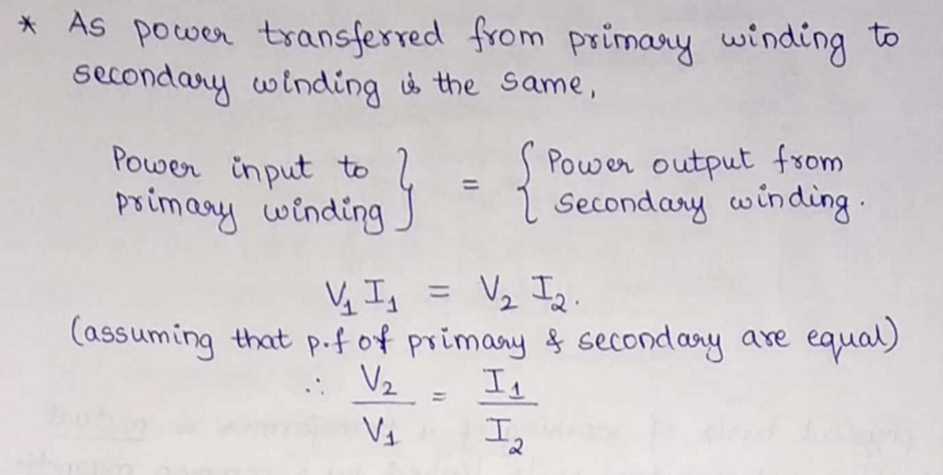 * As power transferred from primary winding to
secondary winding is the same,
Power input to } = { Power output from
primary winding } { secondary winding.
V₁ I₁ = V₂ I₂.
(assuming that p.f of primary & secondary are equal)
∴ V₂/V₁ = I₁/I₂